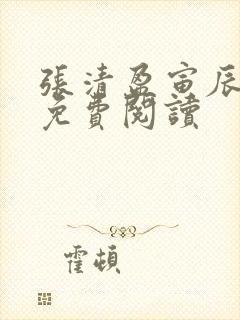 張清盈寅辰
免費閱讀
霍頓